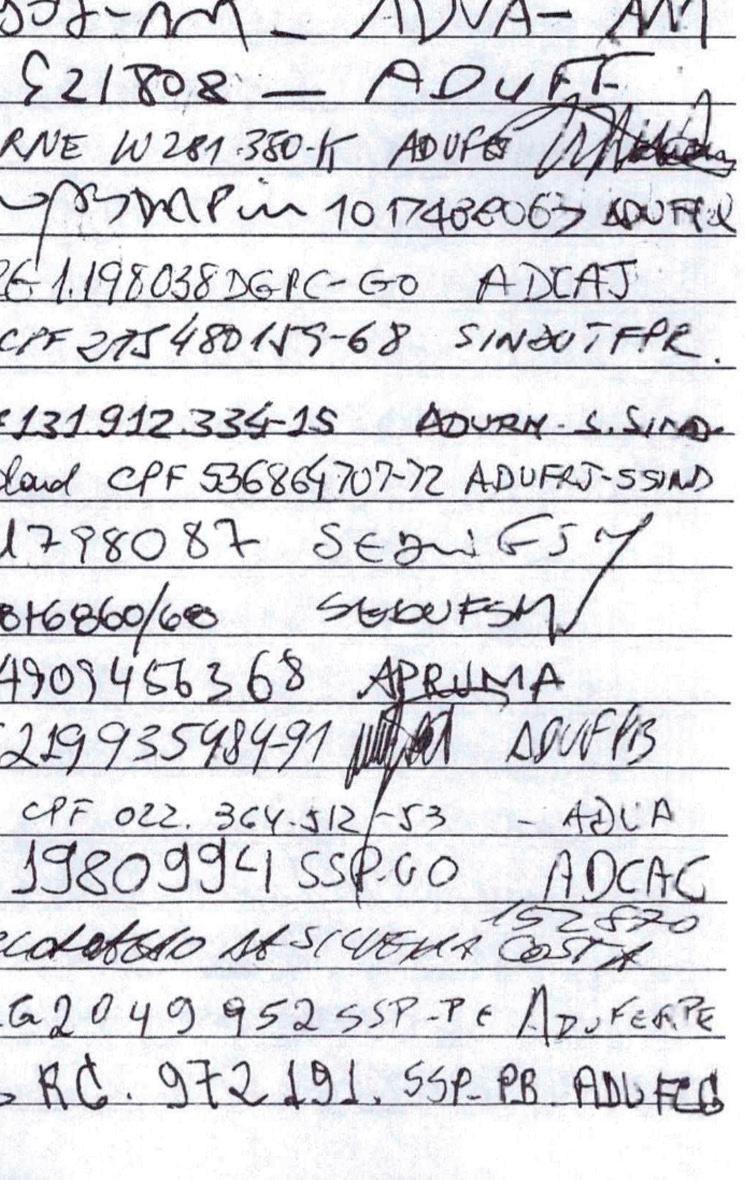 ADUA - AM
E21808 — ADUFF
RNE W281.380-K ADUFES
1017488063 ADUFPEL
1.198038 DGPC-GO ADCAJ
CPF 275480159-68 SINDUTFPR.
131.912.334-15 ADURN-S.SIND.
CPF 536864707-72 ADUFRJ-SSIND
1798087 SEDUFSM
6860/60 SEDUFSM
49094563 68 APRUMA
219935484-91 ADUFPB
CPF 022.364.512-53 - ADUA
19809941 SSP.GO ADCAC
152870
SILVEIRA COSTA
2049952 SSP-PE ADUFERPE
RG. 972.191. SSP-PB. ADUFCG